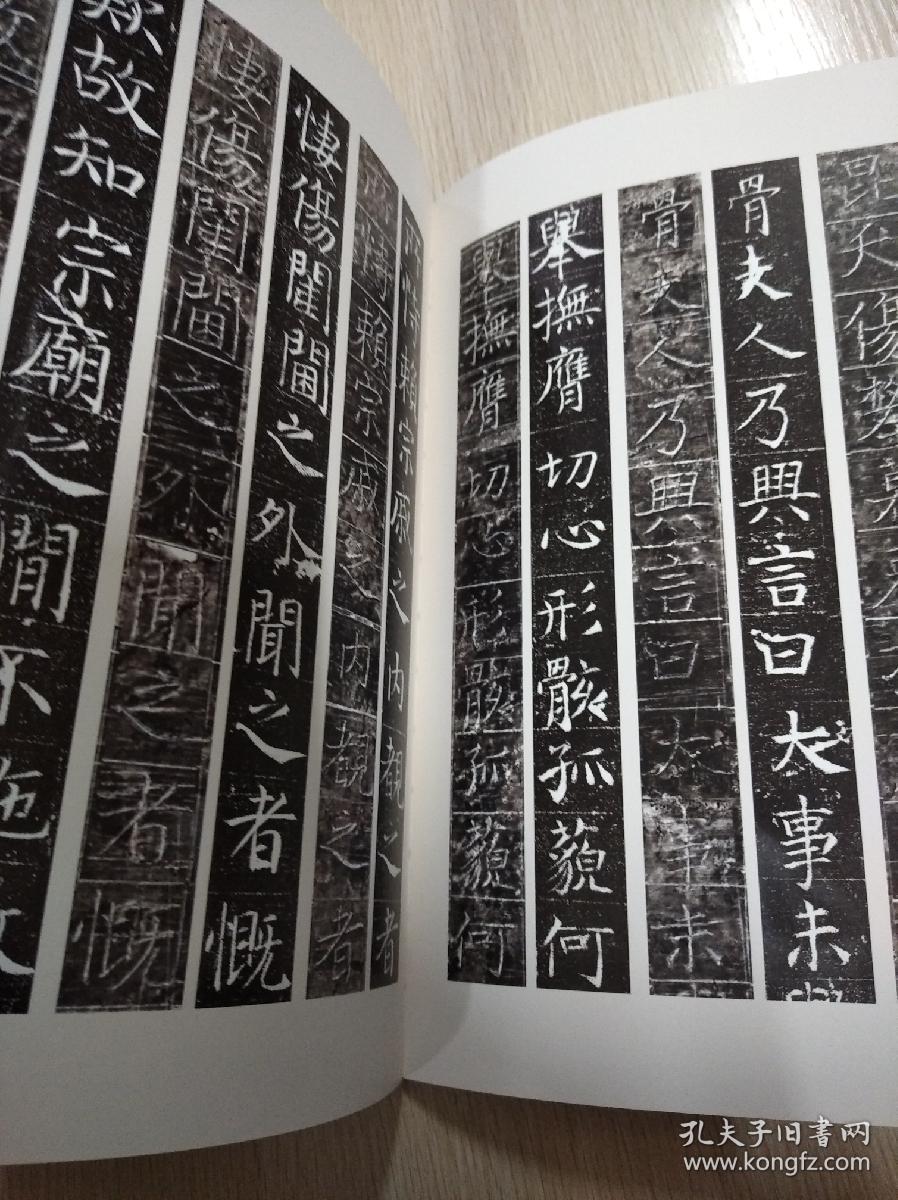 昆夭傷
骨夫人乃興言曰大事未
骨夫人乃興言曰大事未
舉撫膺切心形骸孤藐何
舉撫膺切心形骸孤藐何
恃賴宗戚之内覩之者
恃賴宗戚之内覩之者
悽傷閨閫之外聞之者慨
悽傷閨閫之外聞之者慨
歟故知宗廟之間不施
孔夫子旧書网
www.kongfz.com